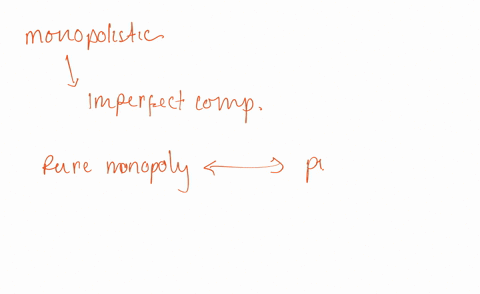 monopolistic
imperfect comp.
Pure monopoly